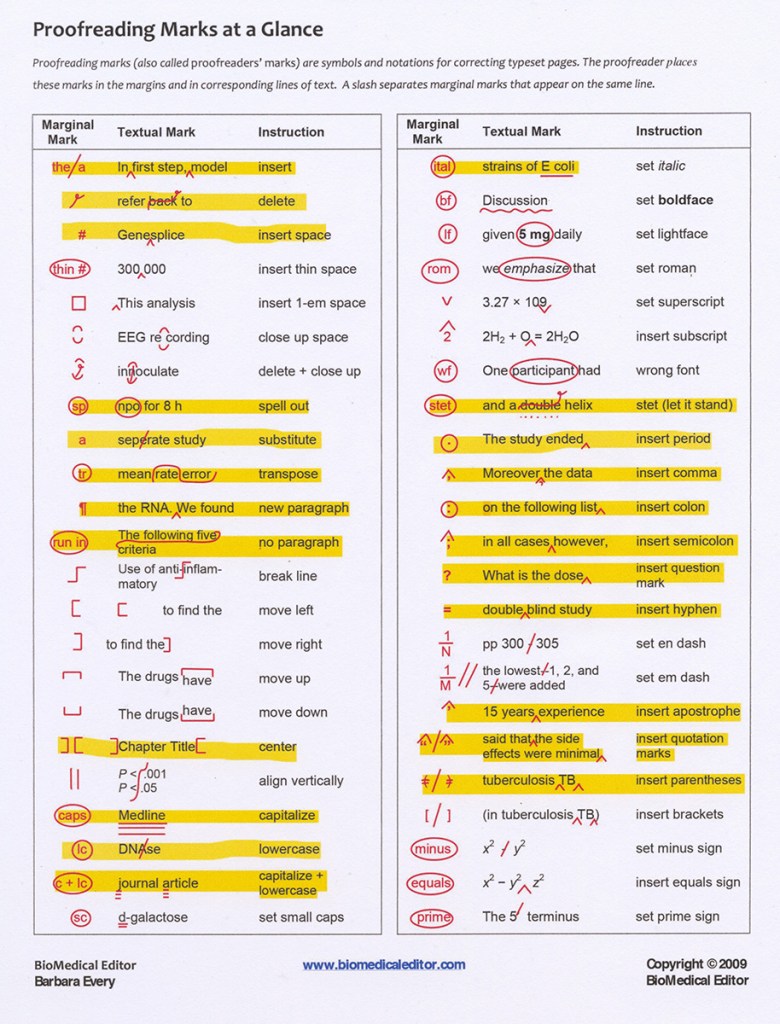 Proofreading Marks at a Glance
Proofreading marks (also called proofreaders' marks) are symbols and notations for correcting typeset pages. The proofreader places
these marks in the margins and in corresponding lines of text. A slash separates marginal marks that appear on the same line.
Marginal Mark Textual Mark Instruction
the/a In first step, model insert
refer back to delete
# Genesplice insert space
thin # 300,000 insert thin space
This analysis insert 1-em space
EEG re cording close up space
innoculate delete + close up
sp npo for 8 h spell out
a seperate study substitute
tr mean rate error transpose
¶ the RNA. We found new paragraph
run in The following five
criteria no paragraph
Use of anti-inflam-
matory break line
[ [ to find the move left
] to find the ] move right
The drugs have move up
The drugs have move down
] [ ]Chapter Title[ center
|| P < .001
P < .05 align vertically
caps Medline capitalize
lc DNAse lowercase
c + lc journal article capitalize +
lowercase
sc d-galactose set small caps
Marginal Mark Textual Mark Instruction
ital strains of E coli set italic
bf Discussion set boldface
lf given 5 mg daily set lightface
rom we emphasize that set roman
3.27 × 109 set superscript
2 2H₂ + O = 2H₂O insert subscript
wf One participant had wrong font
stet and a double helix stet (let it stand)
. The study ended insert period
, Moreover the data insert comma
: on the following list insert colon
; in all cases however, insert semicolon
? What is the dose insert question
mark
= double blind study insert hyphen
1/N pp 300 - 305 set en dash
1/M // the lowest-1, 2, and
5-were added set em dash
15 years experience insert apostrophe
said that the side
effects were minimal insert quotation
marks
tuberculosis TB insert parentheses
[ / ] (in tuberculosis TB) insert brackets
minus x² / y² set minus sign
equals x² – y² z² insert equals sign
prime The 5' terminus set prime sign
BioMedical Editor
Barbara Every
www.biomedicaleditor.com
Copyright © 2009
BioMedical Editor